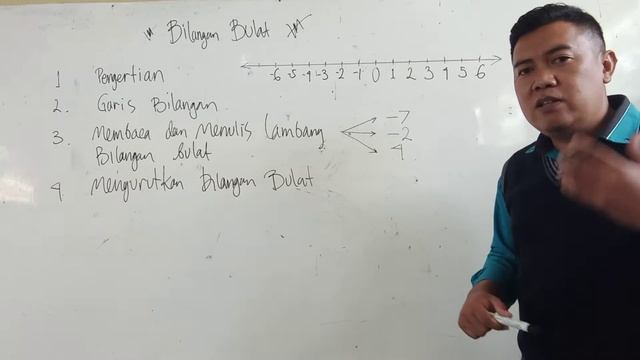 Bilangan Bulat
-6 -5 -4 -3 -2 -1 0 1 2 3 4 5 6
1 Pengertian
2. Garis Bilangan
3. Membaca dan Menulis Lambang
Bilangan Bulat
-7
-2
4
4 Mengurutkan Bilangan Bulat